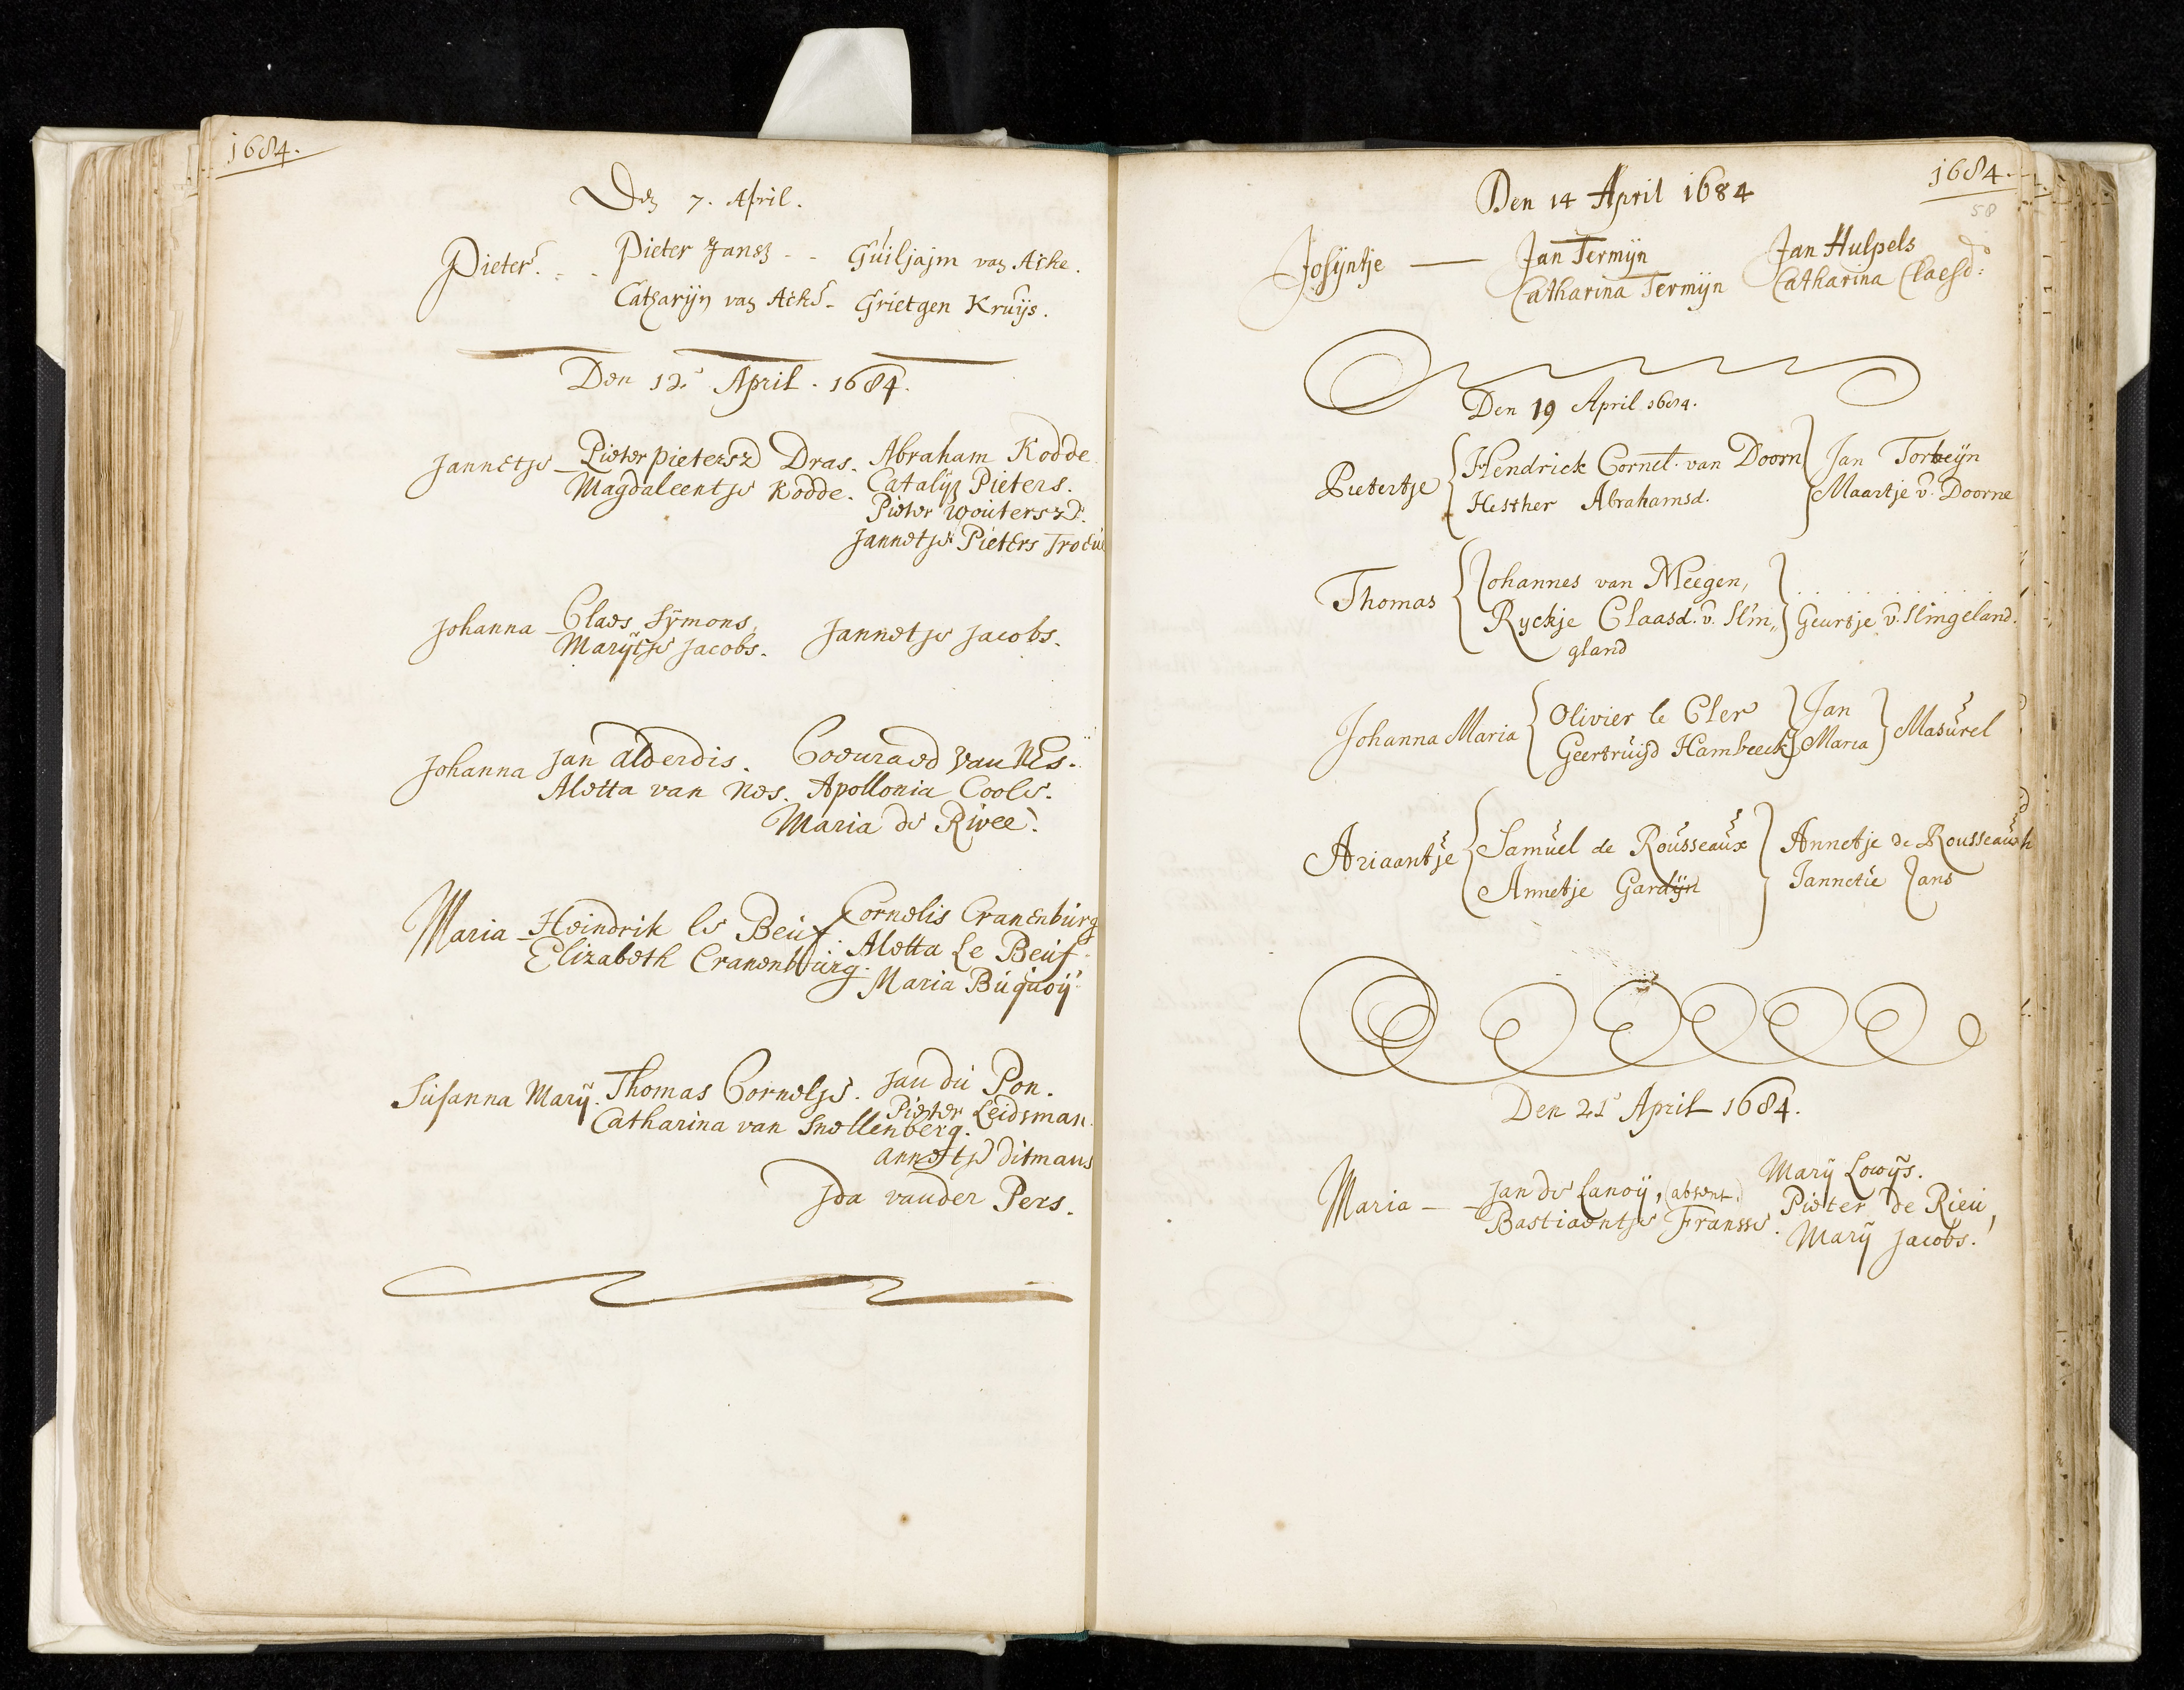 1684.
Den 7. April.
Pieter. - - Pieter Jansz - - Guiljajm van Acke.
Catharijn van Acke - Grietgen Kruijs.
Den 12. April. 1684.
Jannetje - Pieter pietersz Dras. Abraham Kodde
Magdaleentje Kodde. Catalijn Pieters.
Pieter Woutersz.
Jannetje Pieters
Johanna - Claes Sijmons, Jannetje Jacobs.
Marijtje Jacobs.
Johanna Jan alderdis. Coenraed van Nes.
Aletta van Nes. Apollonia Coole.
Maria de Rivee.
Maria - Heindrik le Beuf. Cornelis Cranenburg
Elizabeth Cranenburg. Aletta Le Beuf.
Maria Buquoij.
Susanna Marij. Thomas Cornelje. Jan du Pon.
Catharina van Snellenberg. Pieter Leidsman.
annetje ditmans
Ida vander Pers.
1684.
58
Den 14 April 1684
Josijntje — Jan Termijn Jan Hulpels
Catharina Termijn Catharina Claesd:
Den 19 April 1684.
Pietertje Hendrick Cornel. van Doorn Jan Torbeijn
Hesther Abrahamsd. Maartje v. Doorne
Thomas Johannes van Meegen, . . . . . . . . .
Ryckje Claasd. v. Slin,, Geurtje v. Slingeland.
gland
Johanna Maria Olivier le Cler Jan Masurel
Geertruijd Hambeeck Maria
Ariaantje Samuel de Rousseaux Annetje de Rousseaux
Annetje Gardijn Jannetie Jans
Den 21 April 1684.
Maria - - Jan de Lanoij, (absent.) Marij Lowijs.
Bastiaentje Fransse. Pieter de Rieu,
Marij Jacobs.